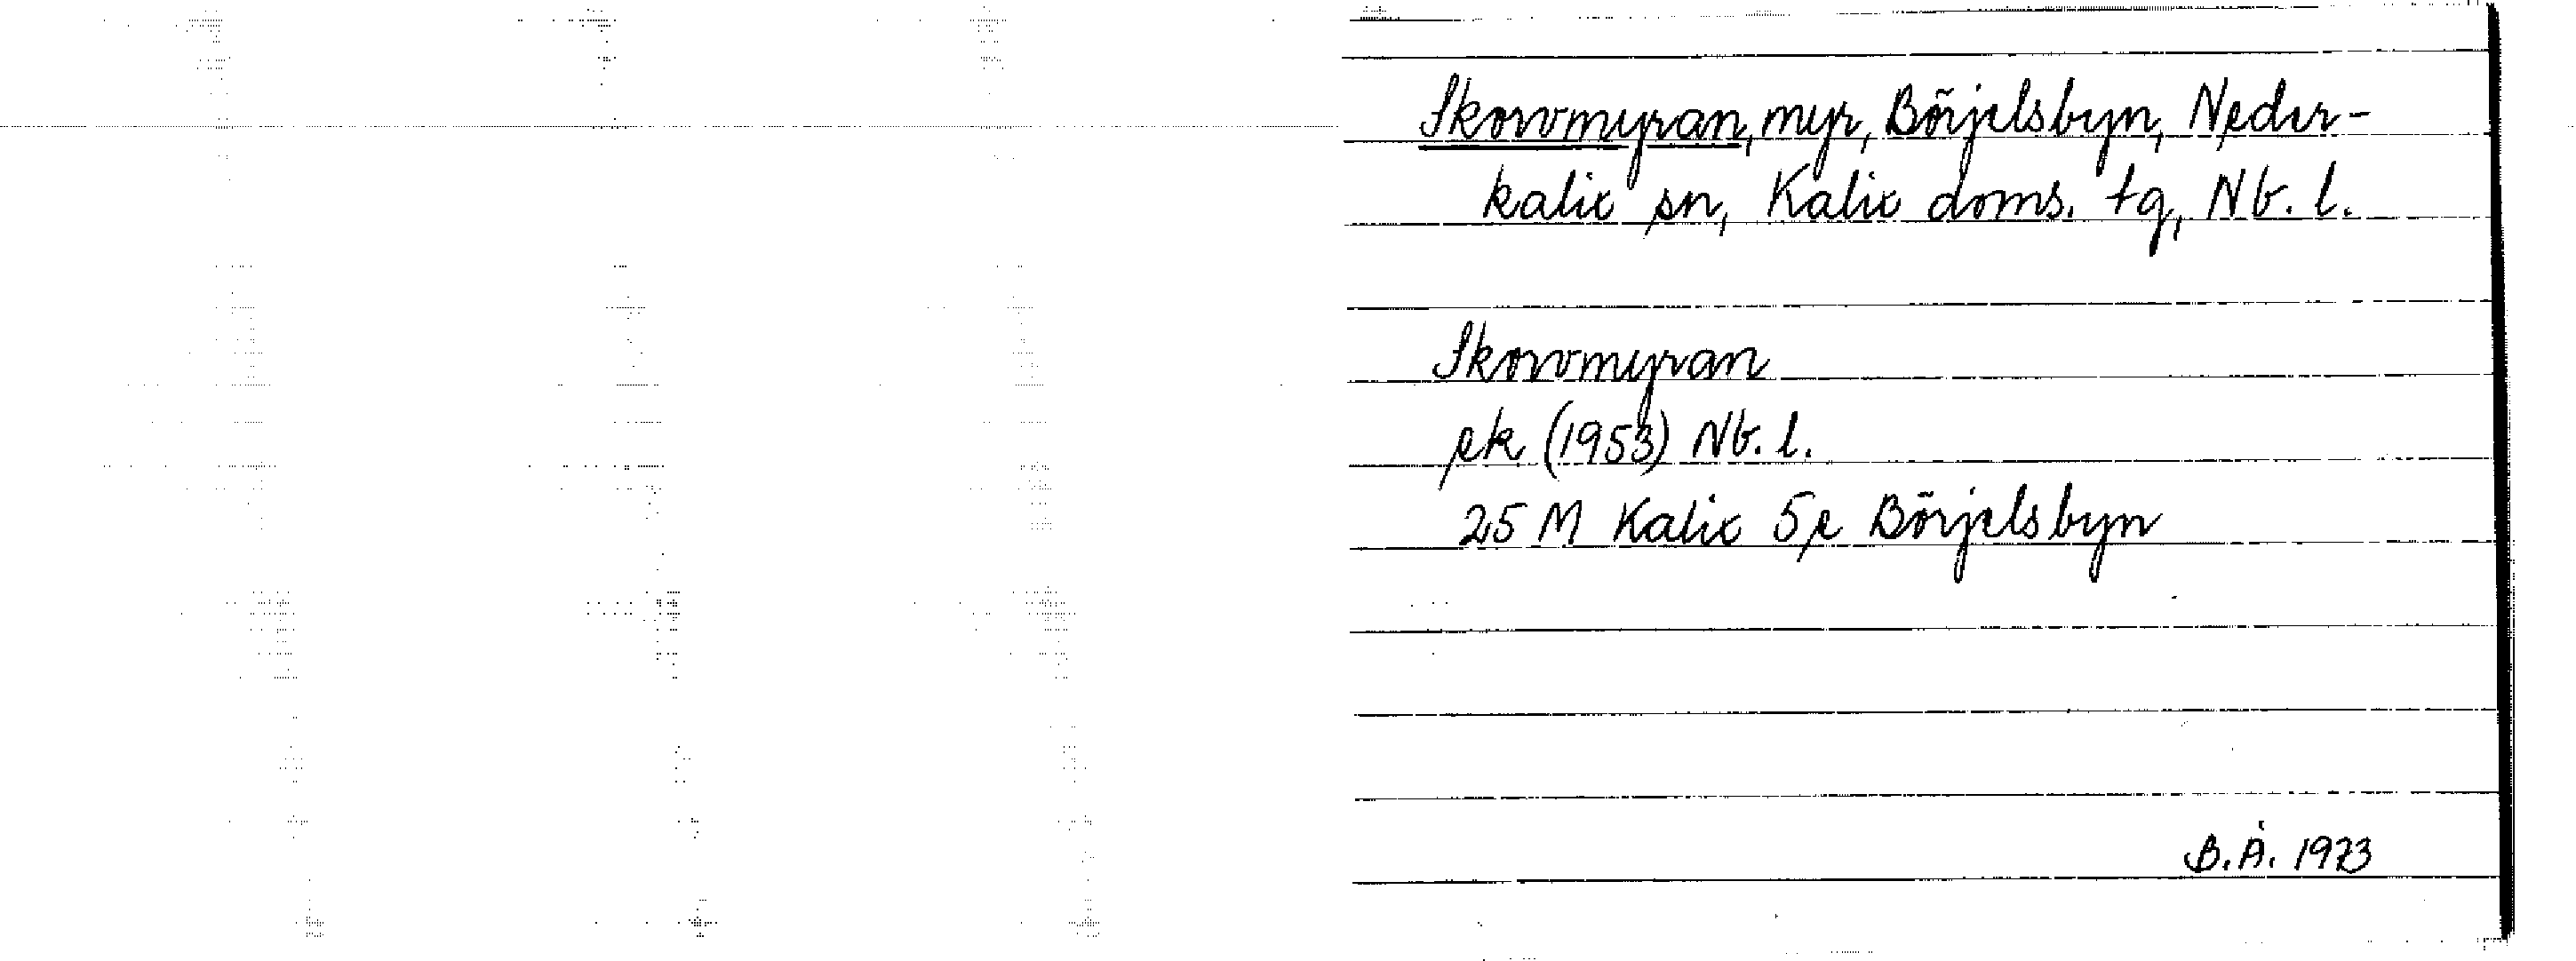 Skorvmyran, myr, Börjelsbyn, Neder-
kalix sn, Kalix doms. tg, Nb. l.
Skorvmyran
ek (1953) Nb. l.
25 M Kalix 5e Börjelsbyn
B.Å. 1973